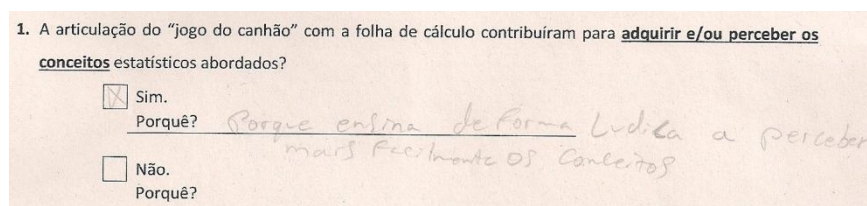 1. A articulação do “jogo do canhão” com a folha de cálculo contribuíram para adquirir e/ou perceber os
conceitos estatísticos abordados?
Sim.
Porquê? Porque ensina de forma Ludica a perceber
mais facilmente os conceitos
Não.
Porquê?